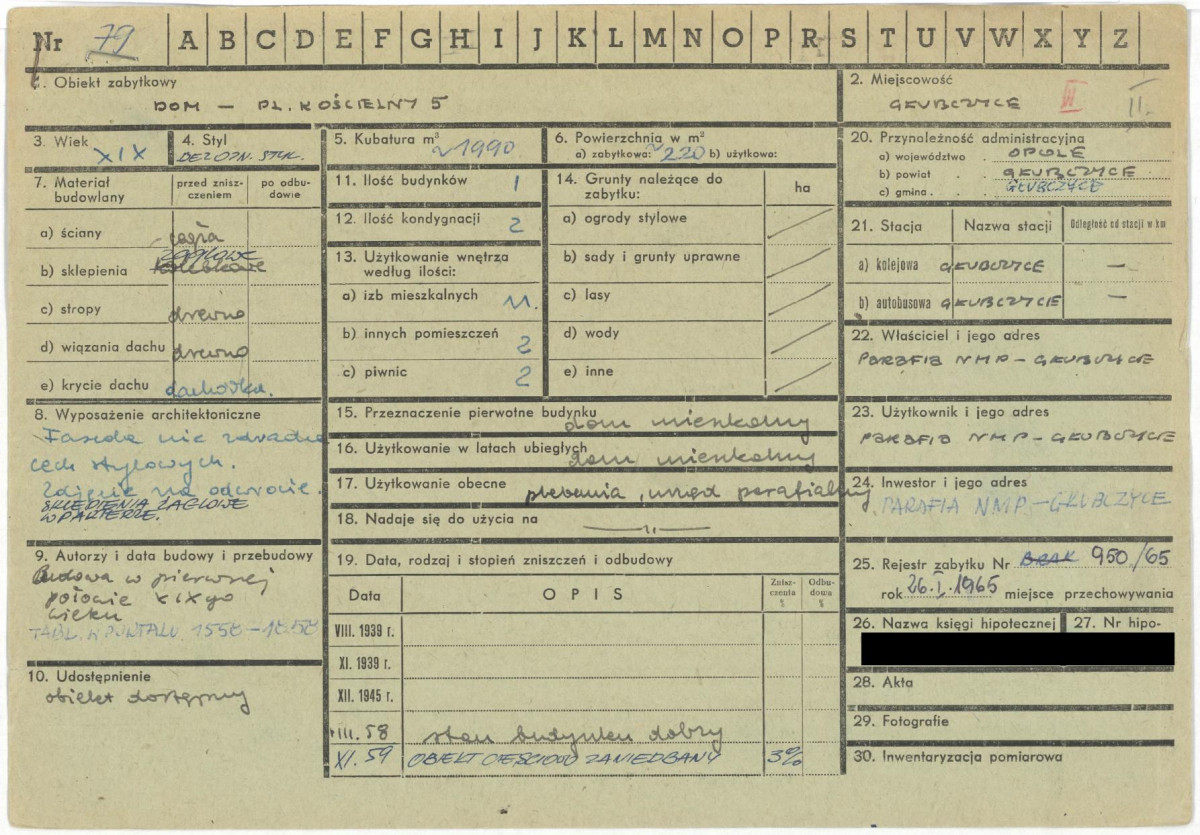 Nr 79 A B C D E F G H I J K L M N O P R S T U V W X Y Z
1. Obiekt zabytkowy
DOM — PL. KOŚCIELNY 5
2. Miejscowość
GŁUBCZYCE III II.
3. Wiek
XIX
4. Styl
BEZ OZN. STYL.
5. Kubatura m³
~1990
6. Powierzchnia w m²
a) zabytkowa: ~220 b) użytkowa:
20. Przynależność administracyjna
a) województwo OPOLE
b) powiat GŁUBCZYCE
c) gmina GŁUBCZYCE
7. Materiał budowlany
przed zniszczeniem
po odbudowie
a) ściany cegła
żaglowe
b) sklepienia kolebkowe
c) stropy drewno
d) wiązania dachu drewno
e) krycie dachu dachówka.
11. Ilość budynków 1
12. Ilość kondygnacji 2
13. Użytkowanie wnętrza
według ilości:
a) izb mieszkalnych 11.
b) innych pomieszczeń 2
c) piwnic 2
14. Grunty należące do
zabytku:
ha
a) ogrody stylowe
b) sady i grunty uprawne
c) lasy
d) wody
e) inne
21. Stacja Nazwa stacji Odległość od stacji w km
a) kolejowa GŁUBCZYCE —
b) autobusowa GŁUBCZYCE —
22. Właściciel i jego adres
PARAFIA NMP - GŁUBCZYCE
8. Wyposażenie architektoniczne
Fasada nie zdradza
cech stylowych.
Zdjęcie na odwrocie.
SKLEPIENIA ŻAGLOWE
W PARTERZE.
15. Przeznaczenie pierwotne budynku
dom mieszkalny
16. Użytkowanie w latach ubiegłych
dom mieszkalny
17. Użytkowanie obecne
plebania, urząd parafialny
18. Nadaje się do użycia na
23. Użytkownik i jego adres
PARAFIA NMP - GŁUBCZYCE
24. Inwestor i jego adres
PARAFIA NMP - GŁUBCZYCE
9. Autorzy i data budowy i przebudowy
Budowa w pierwszej
połowie XIXgo
wieku
TABL. W PORTALU 1558-1858
19. Data, rodzaj i stopień zniszczeń i odbudowy
Data OPIS Zniszczenia % Odbudowa %
VIII. 1939 r.
XI. 1939 r.
XII. 1945 r.
III. 58 stan budynku dobry
XI. 59 OBIEKT CZĘŚCIOWO ZANIEDBANY 3%
25. Rejestr zabytku Nr BRAK 950/65
rok 26.I.1965 miejsce przechowywania
26. Nazwa księgi hipotecznej
27. Nr hipo-
10. Udostępnienie
obiekt dostępny
28. Akta
29. Fotografie
30. Inwentaryzacja pomiarowa